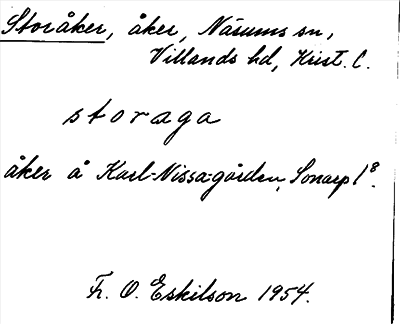 Storåker, åker, Näsums sn,
Villands hd, Krist. l.
storaga
åker å Karl-Nissagården, Sonarp 1⁸.
Fr. O. Eskilson 1954.